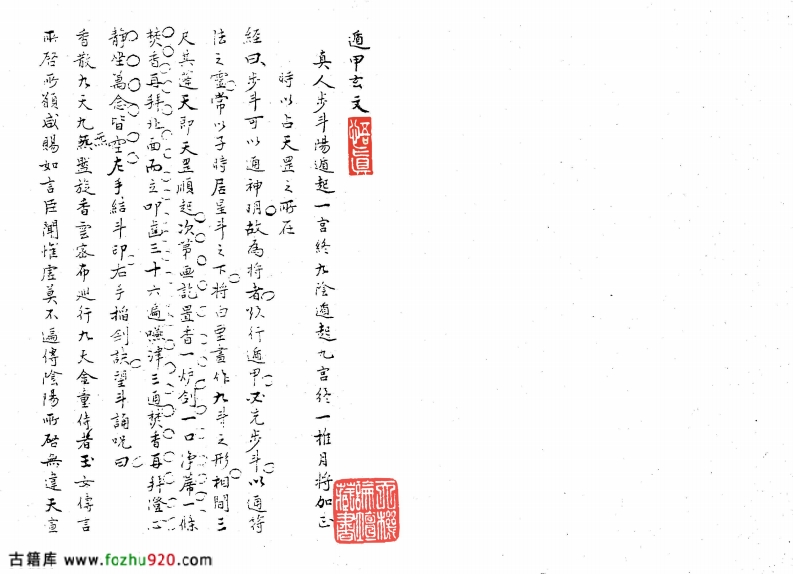 遁甲玄文
悟真
真人步斗陽遁起一宮終九陰遁起九宮終一推月將加正
時以占天罡之所在
經曰步斗可以通神明故為將者欲行遁甲必先步斗以通符
法之靈常以子時居星斗之下將白堊畫作九斗之形相間三
尺其蓬天即天罡順起次第画訖置香一炉剑一口淨蓆一條
焚香再拜北面而立叩齒三十六遍嚥津三通焚香再拜澄心
静坐萬念皆空左手結斗印右手搯剑訣望斗誦咒曰
香散九天九炁盤旋香雲密布巡行九天金童侍者玉女傳言
所啓所願咸賜如言臣聞惟虚莫不遍傳陰陽所啓無違天宣
天機論壇藏書
古籍库 www.fozhu920.com